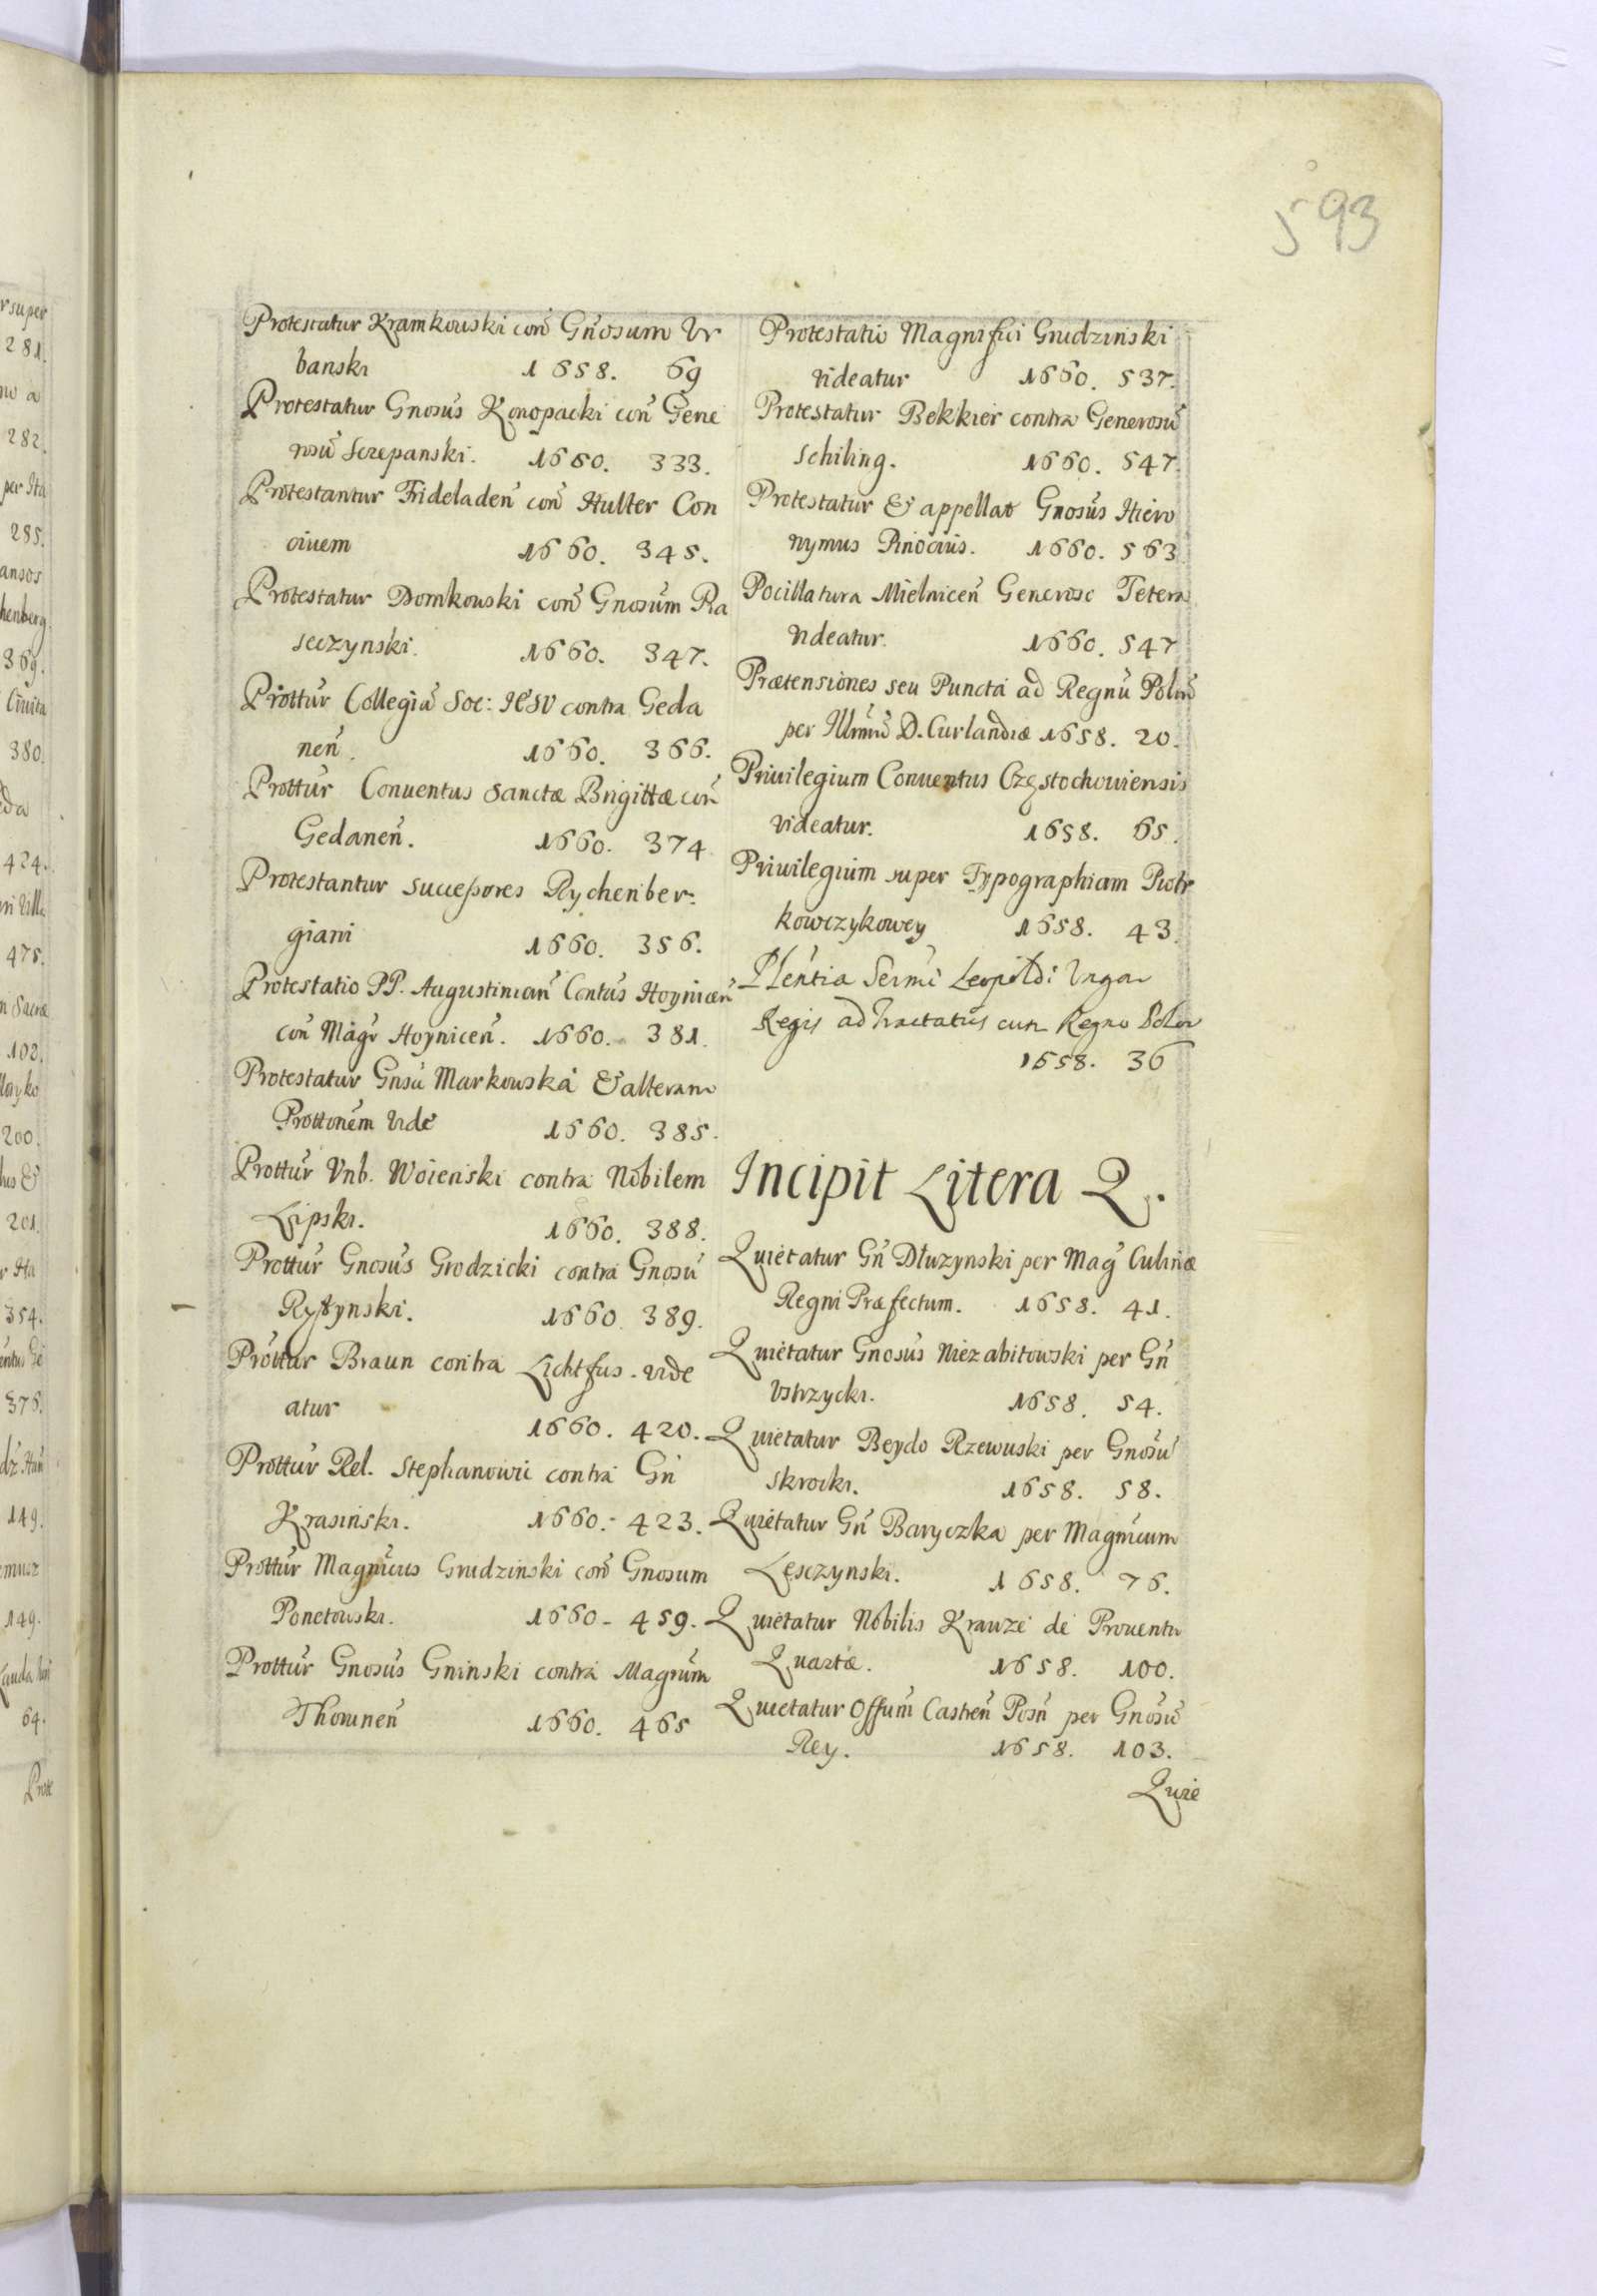 593
Protestatur Kramkowski con Gnosum Vr
banski 1658. 69
Protestatur Gnosus Konopacki con Gene
rosu Sczepanski. 1660. 333.
Protestantur Frideladen con Hulter Con
ciuem 1660. 345.
Protestatur Domkowski con Gnosum Ra
seczynski. 1660. 347.
Prottur Collegiu Soc: JESV contra Geda
nen. 1660. 366.
Prottur Conuentus Sanctæ Brigittæ con
Gedanen. 1660. 374
Protestantur Successores Rychenber-
giani 1660. 356.
Protestatio PP. Augustinian Contus Hoynicen
con Magr Hoynicen. 1660. 381.
Protestatur Gnsu Markowska & alteram
Prottonem vide 1660. 385.
Prottur Vnb. Woienski contra Nobilem
Lipski. 1660. 388.
Prottur Gnosus Grodzicki contra Gnosu
Rystynski. 1660. 389.
Prottur Braun contra Lichtfus. vide
atur 1660. 420.
Prottur Rel. Stephanowic contra Gn
Krasinski. 1660. 423.
Prottur Magnicus Grudzinski con Gnosum
Ponetowski. 1660. 459.
Prottur Gnosus Gninski contra Magrum
Thorunen 1660. 465
Protestatio Magnifici Grudzinski
videatur 1660. 537.
Protestatur Bekkier contra Generosu
Schiling. 1660. 547.
Protestatur & appellat Gnosus Hiero
nymus Pinocius. 1660. 563
Pocillatura Mielnicen Generoso Tetera
videatur. 1660. 547
Prætensiones seu Puncta ad Regnu Polon
per Illrmu D. Curlandiæ 1658. 20.
Priuilegium Conuentus Częstochouiensis
videatur. 1658. 65.
Priuilegium super Typographiam Piotr
kowczykowey 1658. 43.
Plentia Sermi Leopoldi Vngar
Regis ad tractatus cum Regno Polon
1658. 36
Incipit Litera Q.
Quietatur Gn Dłuzynski per Mag Culinæ
Regni Præfectum. 1658. 41.
Quietatur Gnosus Niezabitowski per Gn
Vstrzycki. 1658. 54.
Quietatur Beydo Rzewuski per Gnosu
Skrocki. 1658. 58.
Quietatur Gn Baryczka per Magnicum
Lesczynski. 1658. 76.
Quietatur Nobilis Krauze de Prouentu
Quartæ. 1658. 100.
Quietatur Offum Castren Posn per Gnosu
Rey. 1658. 103.
Quie